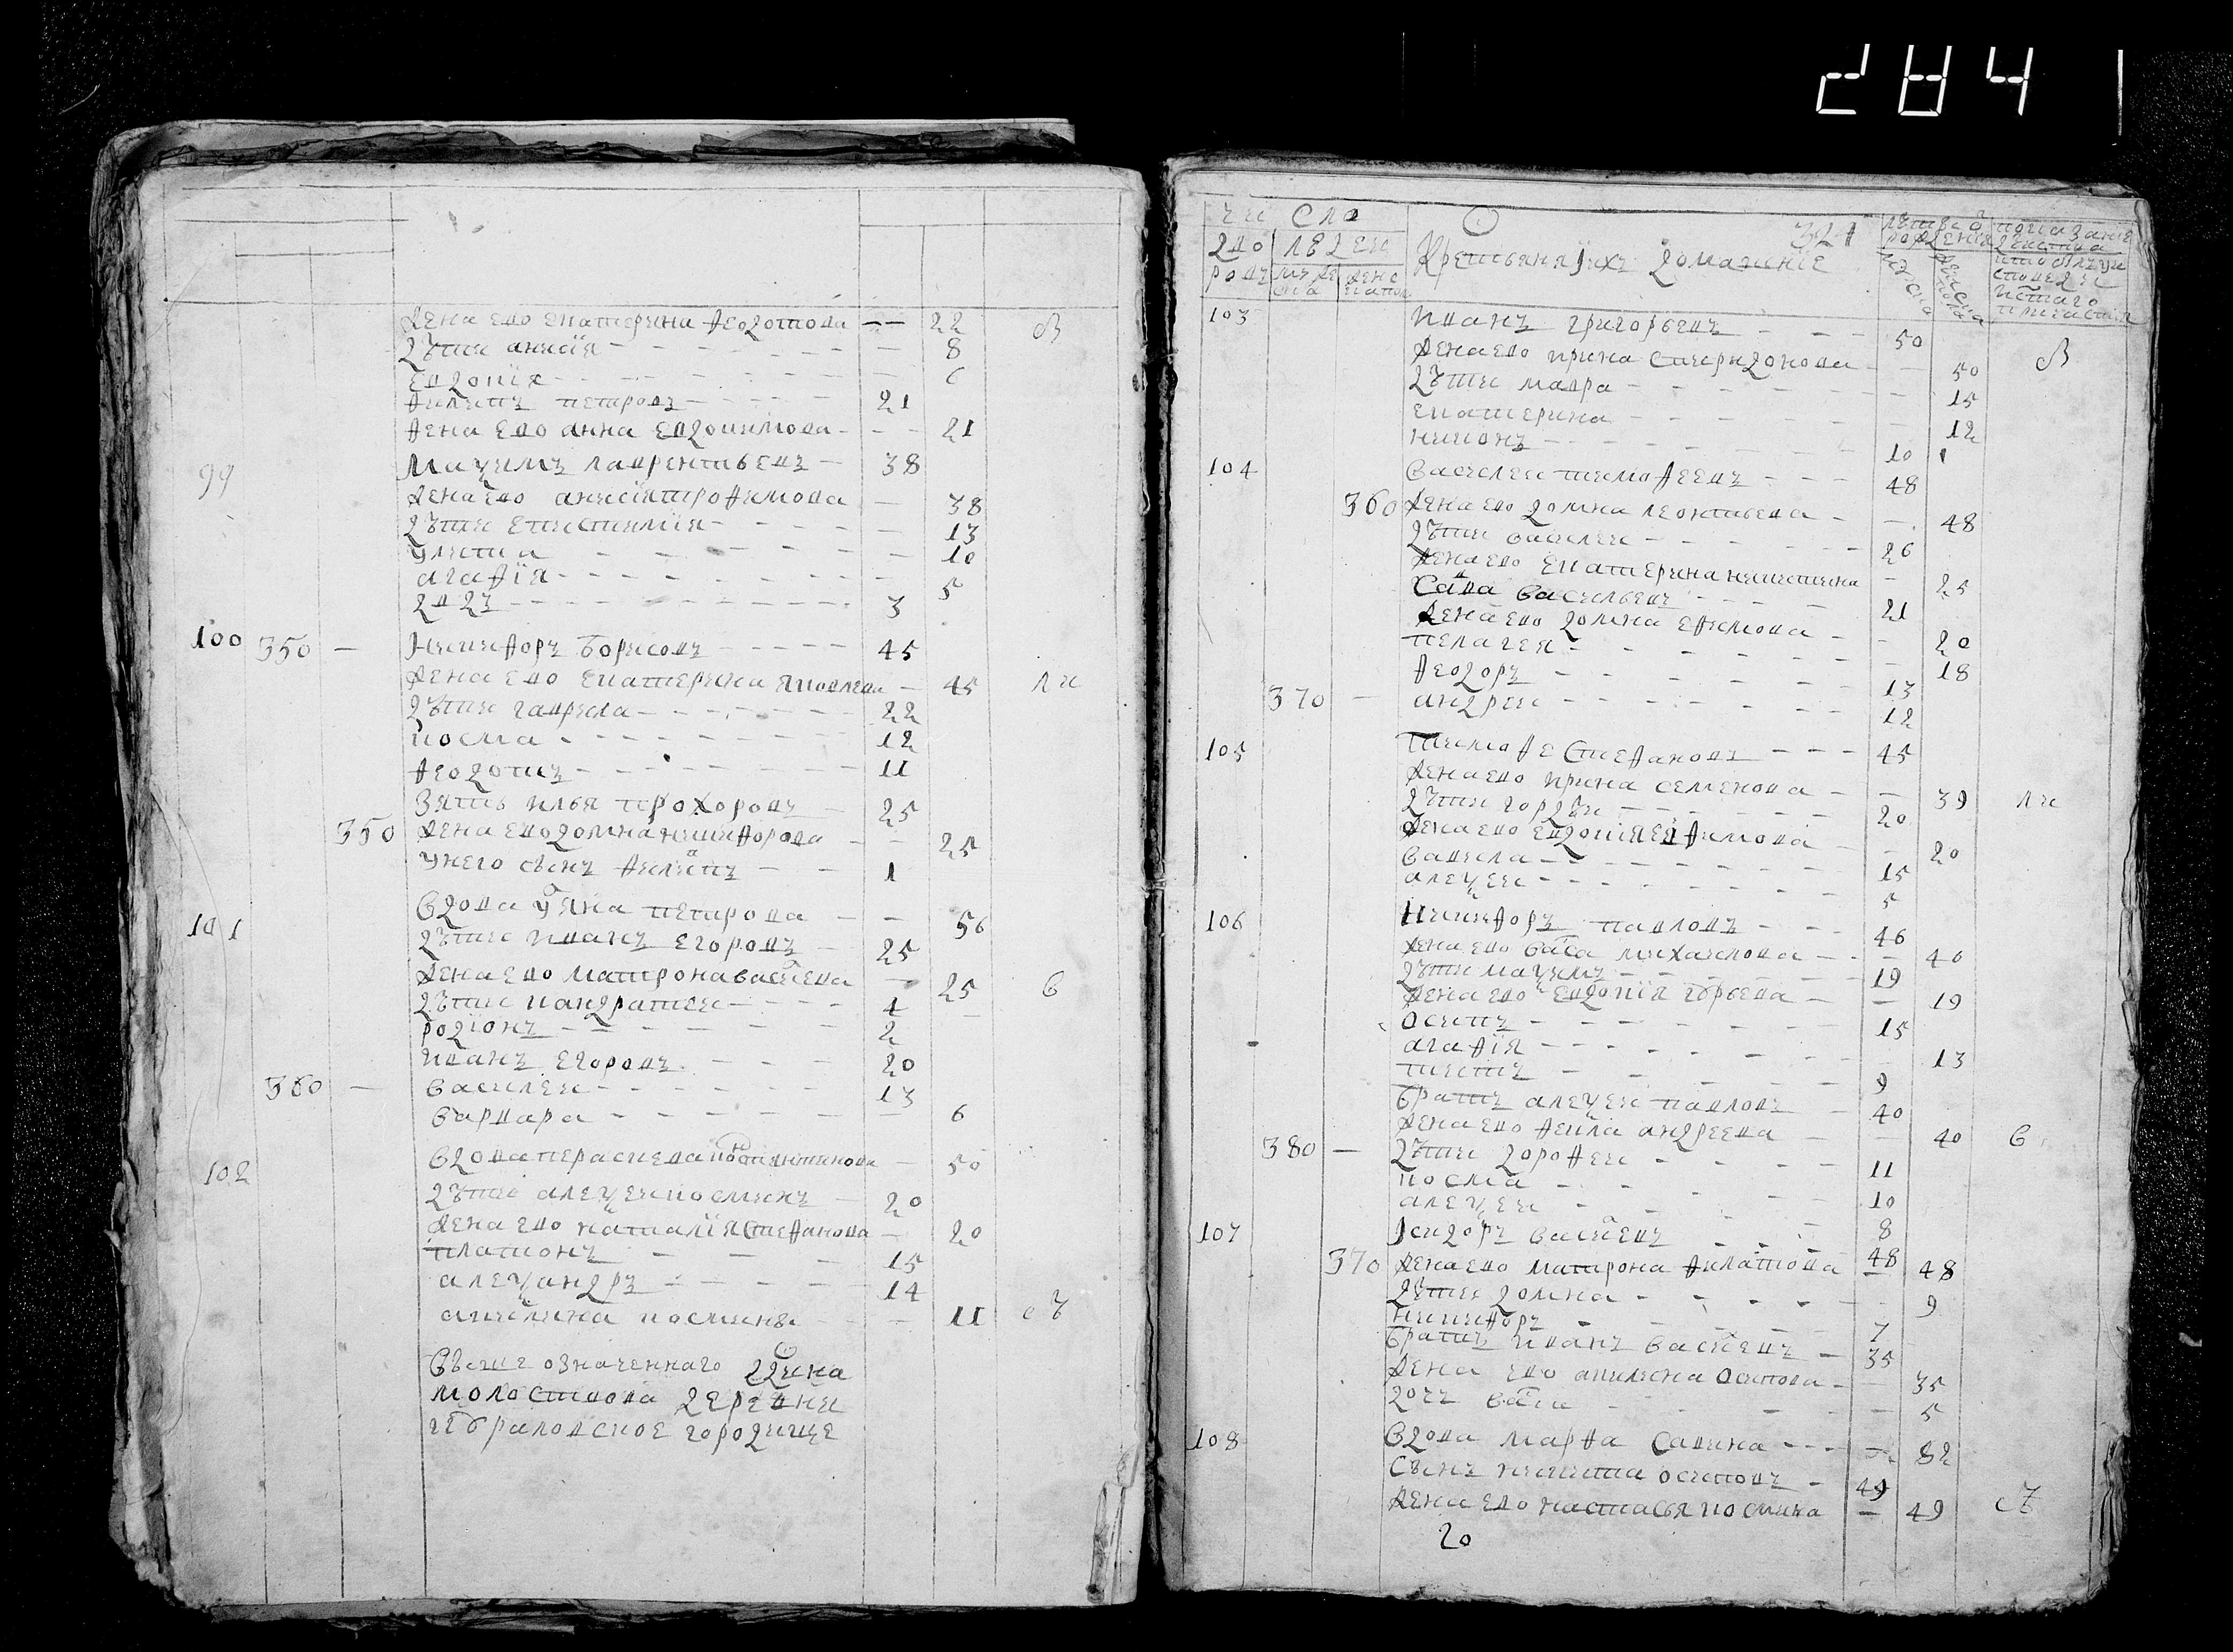 284
жена ево екатерина Ѳеодотова — — 22 в
дѣти анисїя — 8
евдокїя — 6
Ѳилипъ петровъ — 21
жена ево анна евдокимова — 21
99 Маѯимъ лаврентьевъ — 38
жена ево анисїя троѲимова — 38
дѣти епистимїя — 13
улита — 10
агаѲїя — 5
3
100 350 — НикиѲоръ борисовъ — 45
жена ево екатерина яковлева — 45 ли
дѣти гаврила — 22
косма — 12
Ѳеодотъ — 11
Зять илья прохоровъ — 25
350 жена ево домна никиѲорова — 25
унего сынъ Ѳилипъ — 1
101 вдова уляна петрова — 56
дѣти иванъ егоровъ — 25
жена ево матрона васиева — 25 в
дѣти кандратеи — 4
родїонъ — 2
иванъ егоровъ — 20
360 — василеи — 13
варвара — 6
102 вдова параскева костентинова — 50
дѣти алеѯеи косминъ — 20
жена ево наталїя стеѲанова — 20
платонъ — 15
алеѯандръ — 14
акилина космины — 11
выше означеннаго
молоствова деревни
городище
чи сло 324
дво людеи Крестьяня ихъ домашнїе
ровъ
103 иванъ григорьевъ — 50
жена ево ирина спиридонова — 50 в
дѣти мавра — 15
екатерина — 12
никонъ — 10
104 василеи тимоѲеевъ — 48
360 жена ево домна леонтьева — 48
дѣти василеи — 26
жена ево екатерина никитина — 25
Сава васильевъ — 21
жена ево домна еѲимова — 20
пелагея — 18
Ѳеодоръ — 13
370 — андреи — 12
105 тимоѲе стеѲановъ — 45
жена ево ирина семенова — 39 ли
дѣти гордѣи — 20
жена ево евдокїя еѲимова — 20
вавила — 15
алеѯеи — 5
106 НикиѲоръ павловъ — 46
жена ево васа михаилова — 40
дѣти маѯимъ — 19
жена ево евдокїя — 19
осипъ — 15
агаѲїя — 13
титъ — 9
братъ алеѯеи павловъ — 40
жена ево Ѳекла андреева — 40 в
380 — дѣти дороѲеи — 11
косма — 10
алеѯеи — 8
107 Ісидоръ васиевъ — 48
370 жена ево матрона Ѳилатова — 48
дѣти домна — 9
никиѲоръ — 7
братъ иванъ васиевъ — 35
жена ево акилина осипова — 35
дочъ васа — 5
108 вдова марѲа савина — 82
Сынъ никита осиповъ — 49
жена ево настасья космина — 49
20